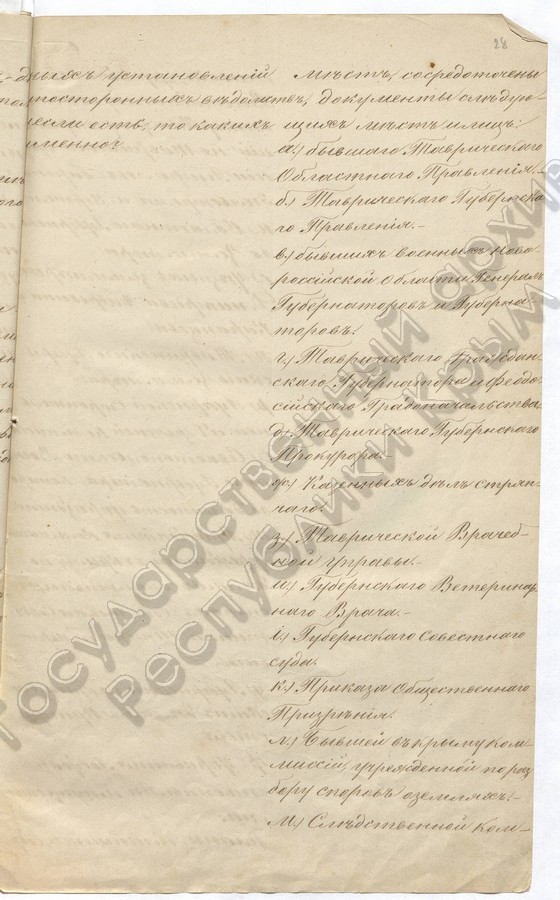 28
дныхъ установленій
постороннихъ вѣдомствъ,
если есть, то какихъ
именно?
мѣстъ, сосредоточены
документы слѣдую-
щихъ мѣстъ и лицъ:
а.) бывшаго Таврическаго
Областнаго Правленія.-
б.) Таврическаго Губернска-
го Правленія.-
в.) бывшихъ военныхъ Ново-
россійской Области Генералъ
Губернаторовъ и Губерна-
торовъ.
г.) Таврическаго Граждан-
скаго Губернатора и Ѳеодо-
сійскаго Градоначальства.
д.) Таврическаго Губернскаго
Прокурора.-
Казенныхъ дѣлъ стряп-
чаго.
з.) Таврической Врачеб-
ной управы.-
и.) Губернскаго Ветеринар-
наго Врача.-
і.) Губернскаго Совестнаго
суда.
к.) Приказа Общественнаго
Призрѣнія.
л.) Бывшей въ Крыму Ком-
миссій, учрежденной по раз
бору споровъ о земляхъ.-
м.) Слѣдственной Ком-
Государственный архив
Республики Крым